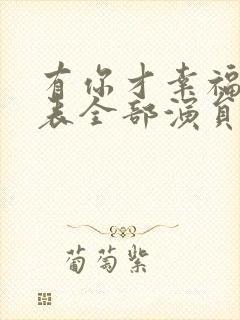 有你才幸福
表全部演员
葡萄紫